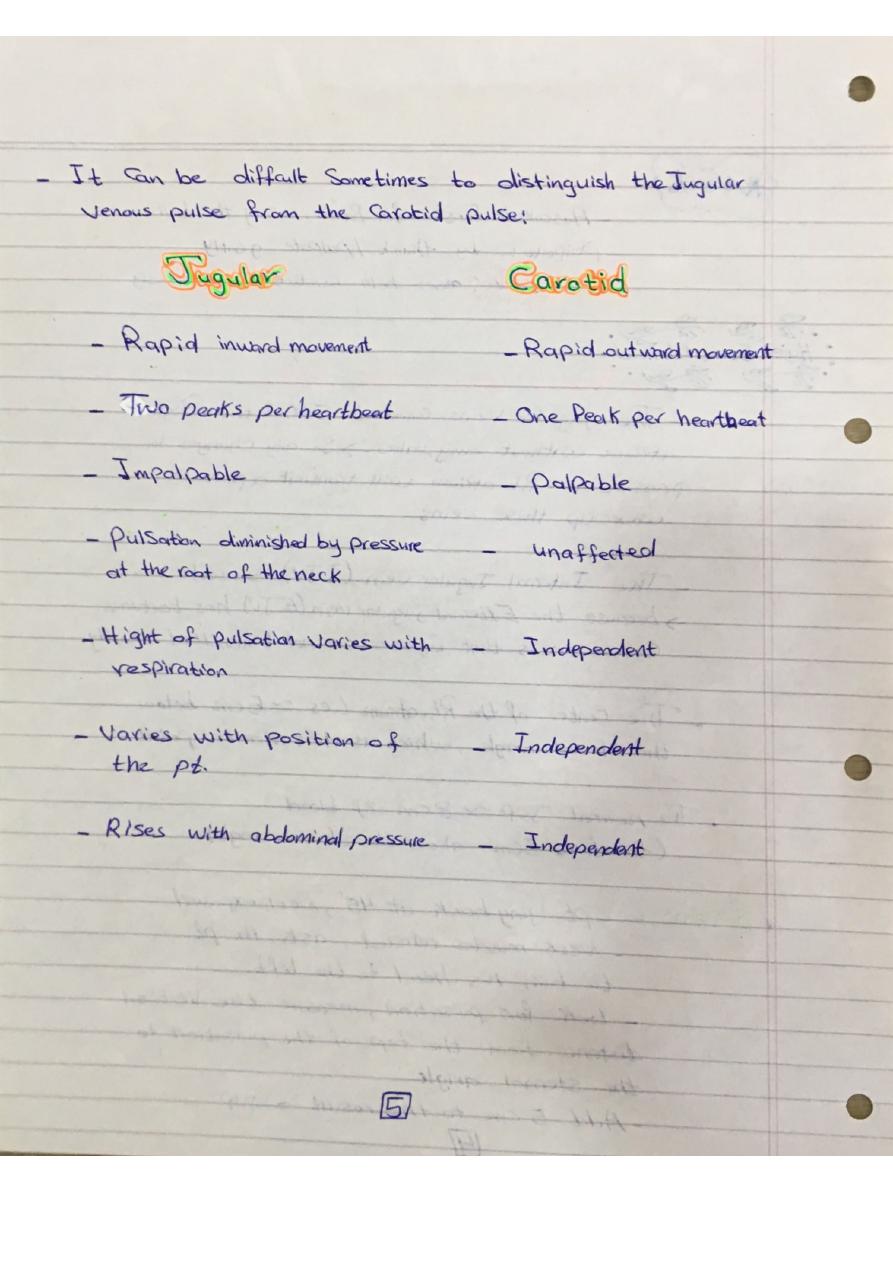 - It Can be diffcult Sometimes to distinguish the Jugular
Venous pulse from the Carotid pulse:
Jugular Carotid
- Rapid inward movement - Rapid outward movement
- Two peaks per heartbeat - One Peak per heartbeat
- Impalpable - Palpable
- Pulsation diminished by pressure - unaffected
at the root of the neck
- Hight of pulsation Varies with - Independent
respiration
- Varies with position of - Independent
the pt.
- Rises with abdominal pressure - Independent
5